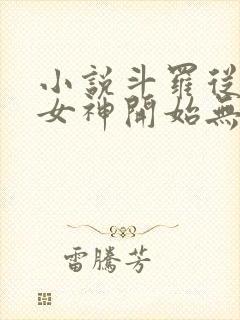 小説斗羅從
女神開始無
雷騰芳